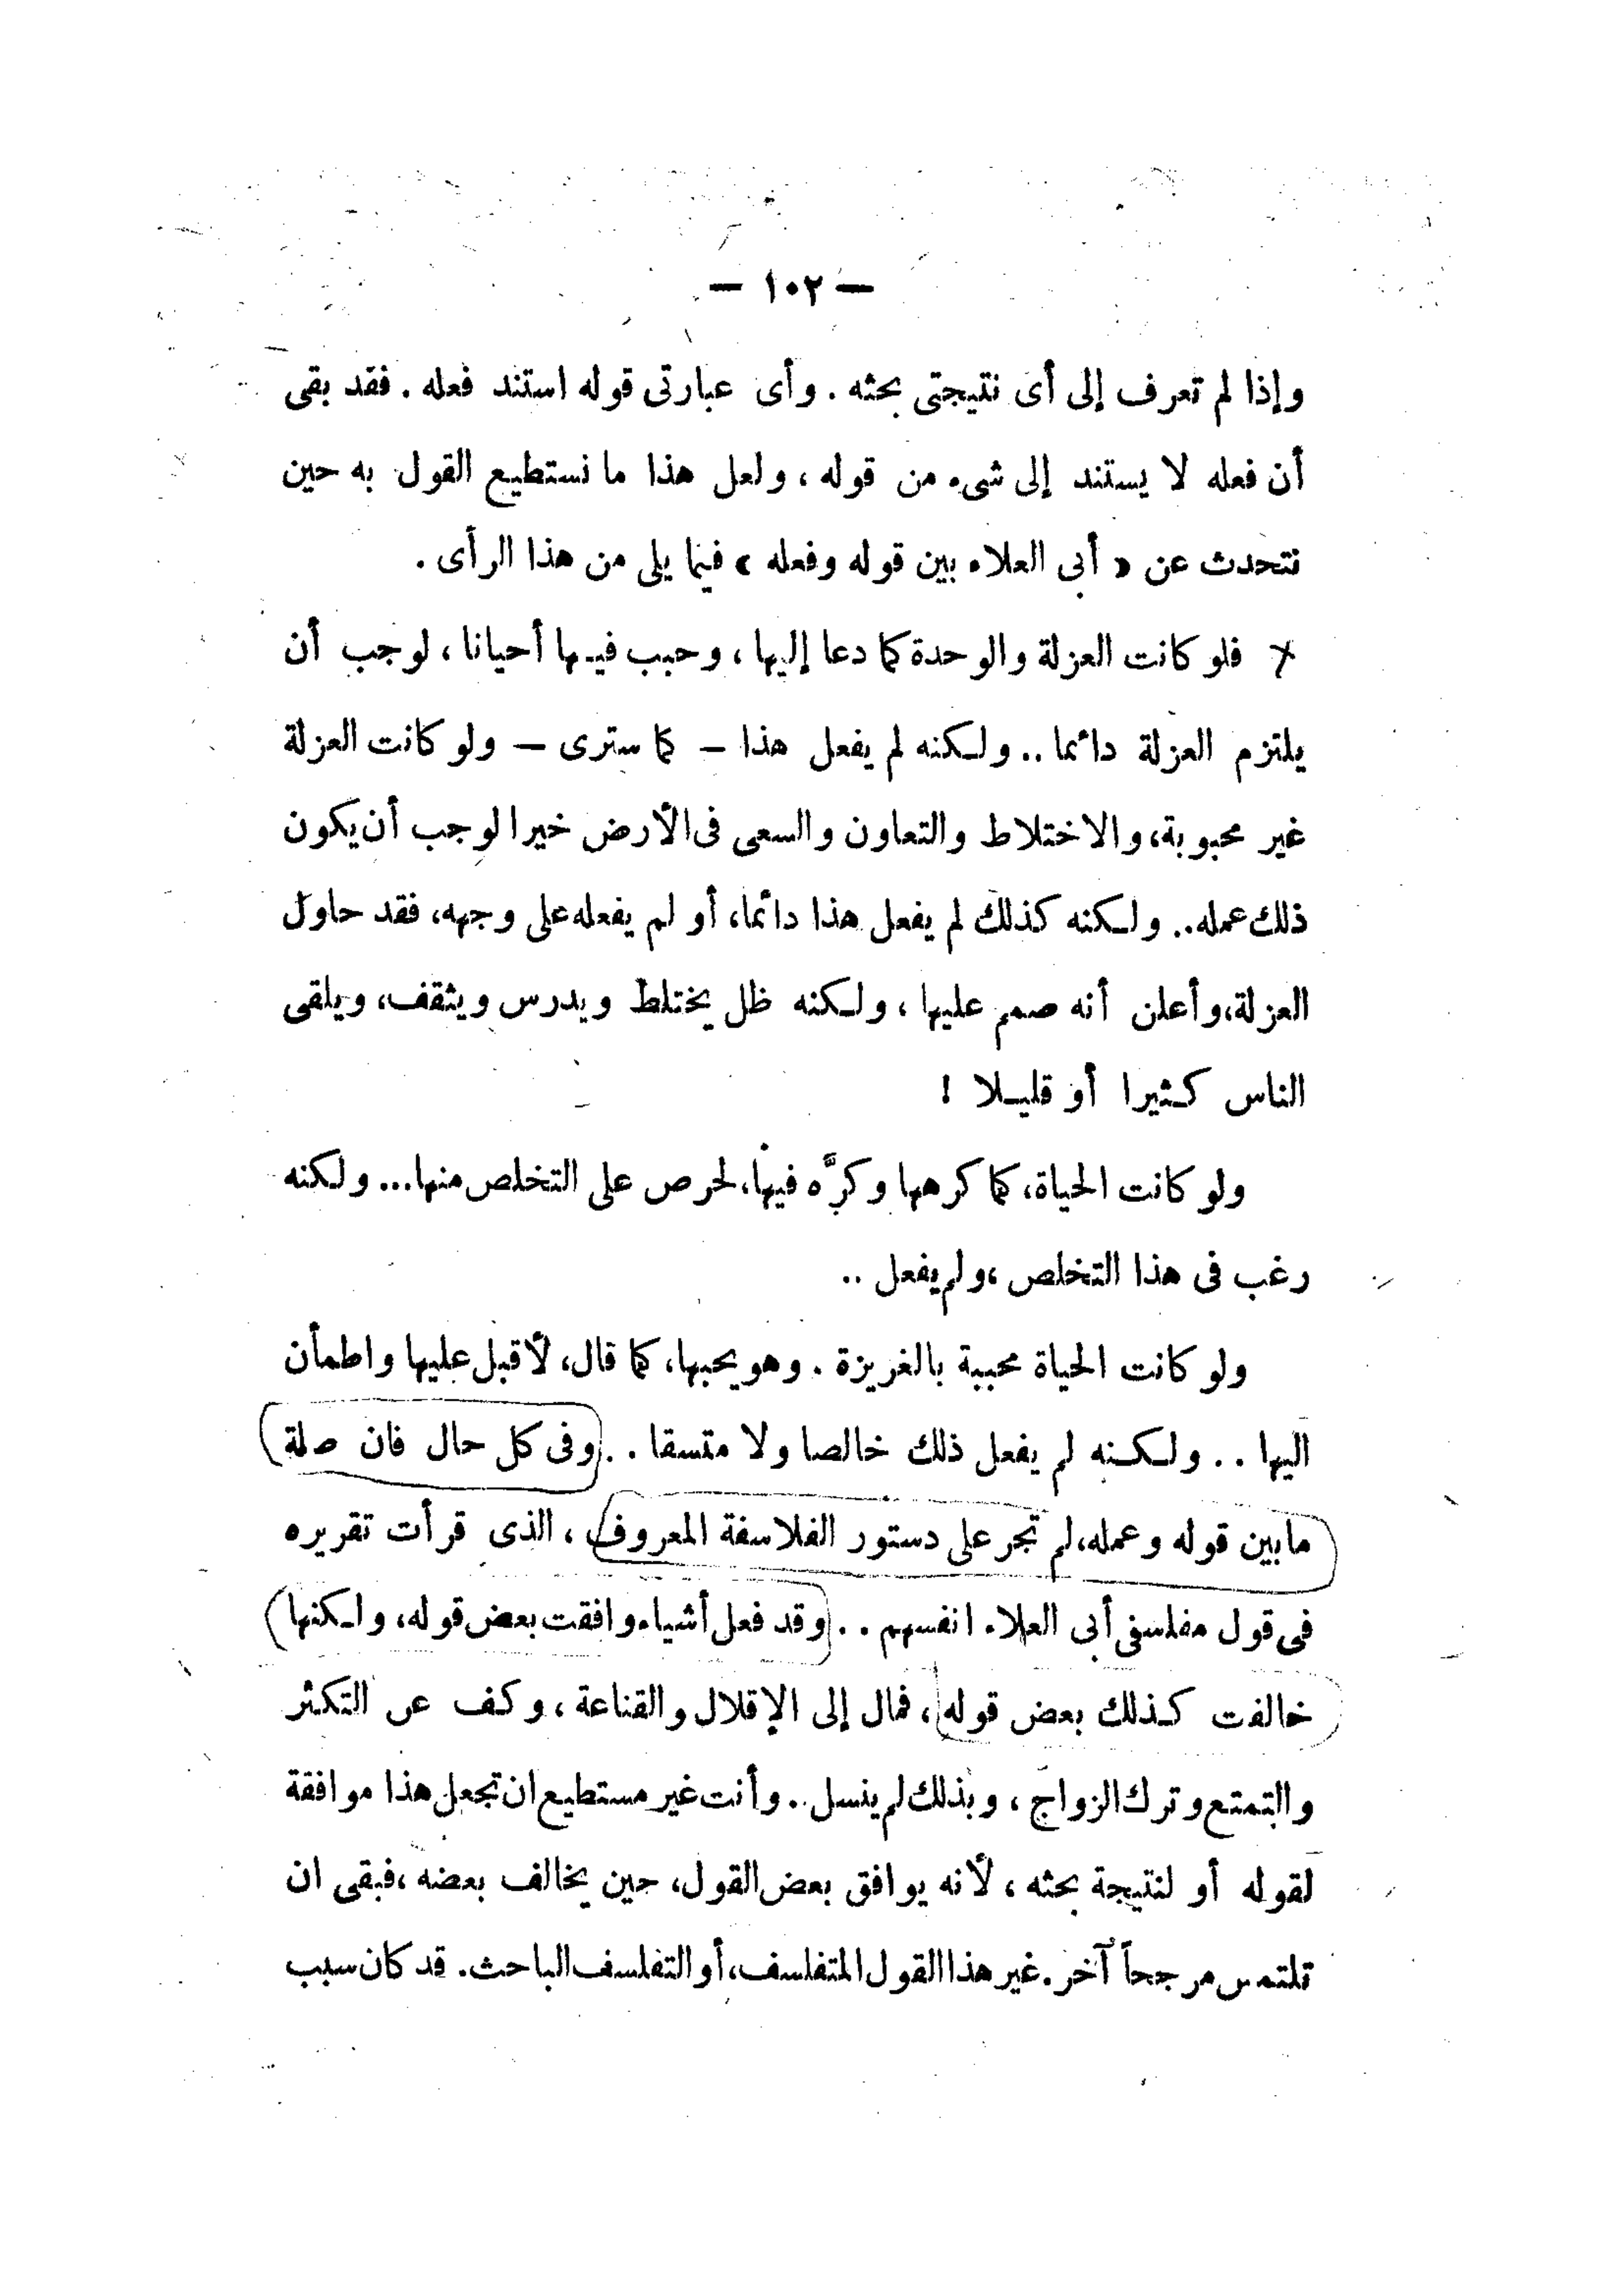 — ١٠٢ —
وإذا لم تعرف إلى أى نتيجتى بحثه . وأى عبارتى قوله استند فعله . فقد بقى
أن فعله لا يستند إلى شىء من قوله ، ولعل هذا ما نستطيع القول به حين
نتحدث عن « أبى العلاء بين قوله وفعله » فيما يلى من هذا الرأى .
فلو كانت العزلة والوحدة كما دعا إليها ، وحبب فيها أحيانا ، لوجب أن
يلتزم العزلة دائما .. ولكنه لم يفعل هذا – كما سترى – ولو كانت العزلة
غير محبوبة، والاختلاط والتعاون والسعى فى الأرض خيرا لوجب أن يكون
ذلك عمله.. ولكنه كذلك لم يفعل هذا دائما، أو لم يفعله على وجهه، فقد حاول
العزلة، وأعلن أنه صمم عليها ، ولكنه ظل يختلط ويدرس ويثقف، ويلقى
الناس كثيرا أو قليلا !
ولو كانت الحياة، كما كرهها وكرَّه فيها، لحرص على التخلص منها... ولكنه
رغب فى هذا التخلص ، ولم يفعل ..
ولو كانت الحياة محببة بالغريزة . وهو يحبها، كما قال، لأقبل عليها واطمأن
اليها . . ولكنه لم يفعل ذلك خالصا ولا متسقا . . وفى كل حال فان صلة
مابين قوله وعمله، لم تجر على دستور الفلاسفة المعروف ، الذى قرأت تقريره
فى قول مفلسفى أبى العلاء انفسهم . . وقد فعل أشياء وافقت بعض قوله، ولكنها
خالفت كذلك بعض قوله ، فمال إلى الإقلال والقناعة ، وكف عن التكثر
والتمتع وترك الزواج ، وبذلك لم ينسل .. وأنت غير مستطيع ان تجعل هذا موافقة
لقوله أو لنتيجة بحثه ، لأنه يوافق بعض القول، حين يخالف بعضه ، فبقى ان
تلتمس مرجحاً آخر. غير هذا القول المتفلسف، أو التفلسف الباحث. قد كان سبب